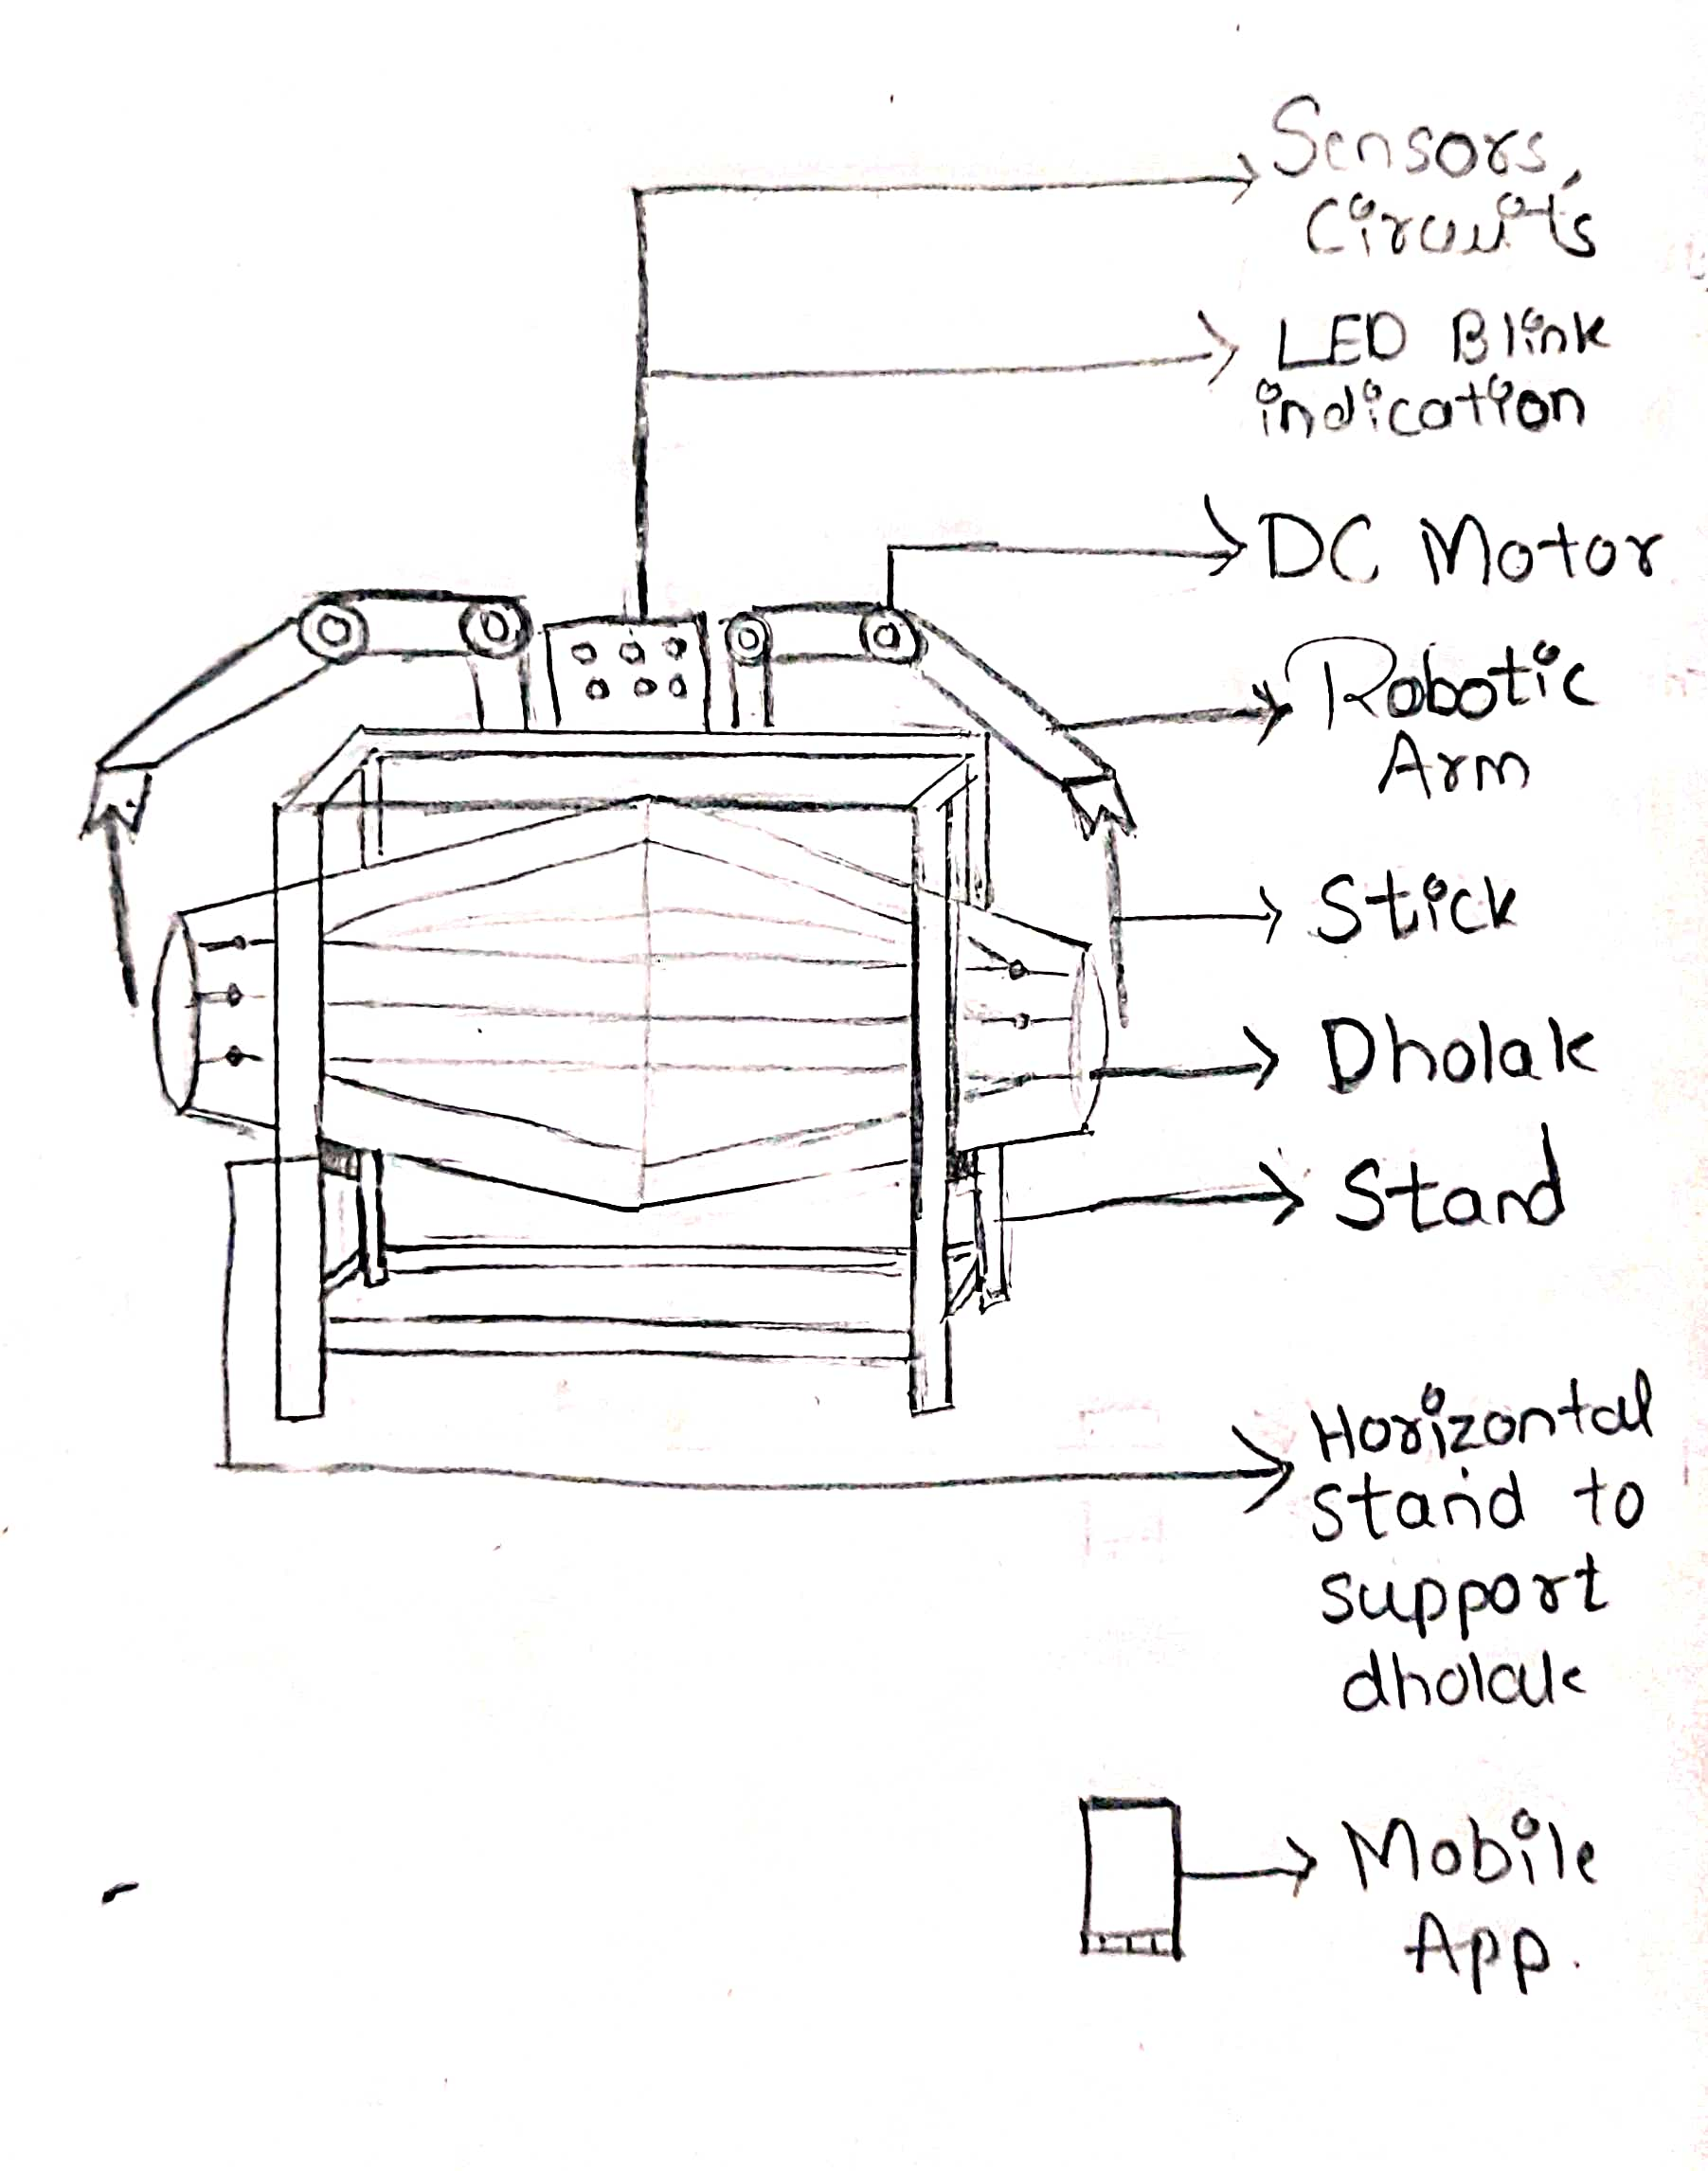 Sensors,
Circuits
LED Blink
indication
DC Motor
Robotic
Arm
Stick
Dholak
Stand
Horizontal
stand to
support
dholak
Mobile
App.